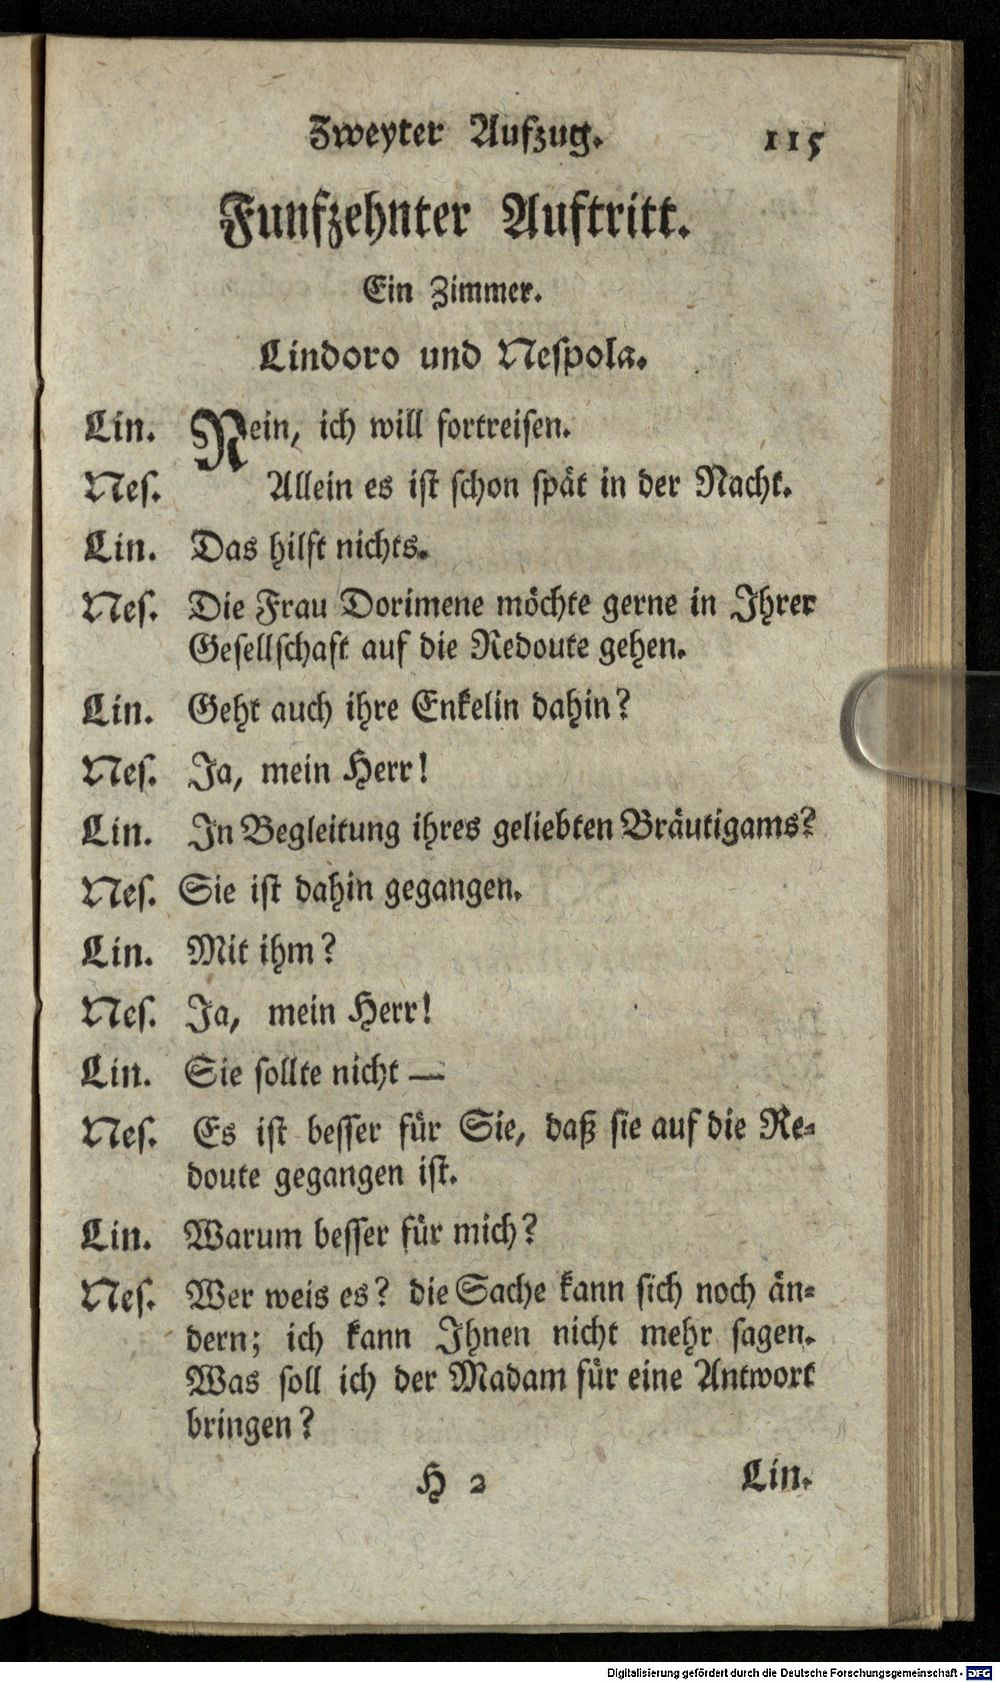 Zweyter Aufzug. 115
Funfzehnter Auftritt.
Ein Zimmer.
Lindoro und Nespola.
Lin. Nein, ich will fortreisen.
Nes. Allein es ist schon spät in der Nacht.
Lin. Das hilft nichts.
Nes. Die Frau Dorimene möchte gerne in Ihrer
Gesellschaft auf die Redoute gehen.
Lin. Geht auch ihre Enkelin dahin?
Nes. Ja, mein Herr!
Lin. In Begleitung ihres geliebten Bräutigams?
Nes. Sie ist dahin gegangen.
Lin. Mit ihm?
Nes. Ja, mein Herr!
Lin. Sie sollte nicht —
Nes. Es ist besser für Sie, daß sie auf die Re-
doute gegangen ist.
Lin. Warum besser für mich?
Nes. Wer weis es? die Sache kann sich noch än-
dern; ich kann Ihnen nicht mehr sagen.
Was soll ich der Madam für eine Antwort
bringen?
H 2 Lin.
Digitalisierung gefördert durch die Deutsche Forschungsgemeinschaft - DFG